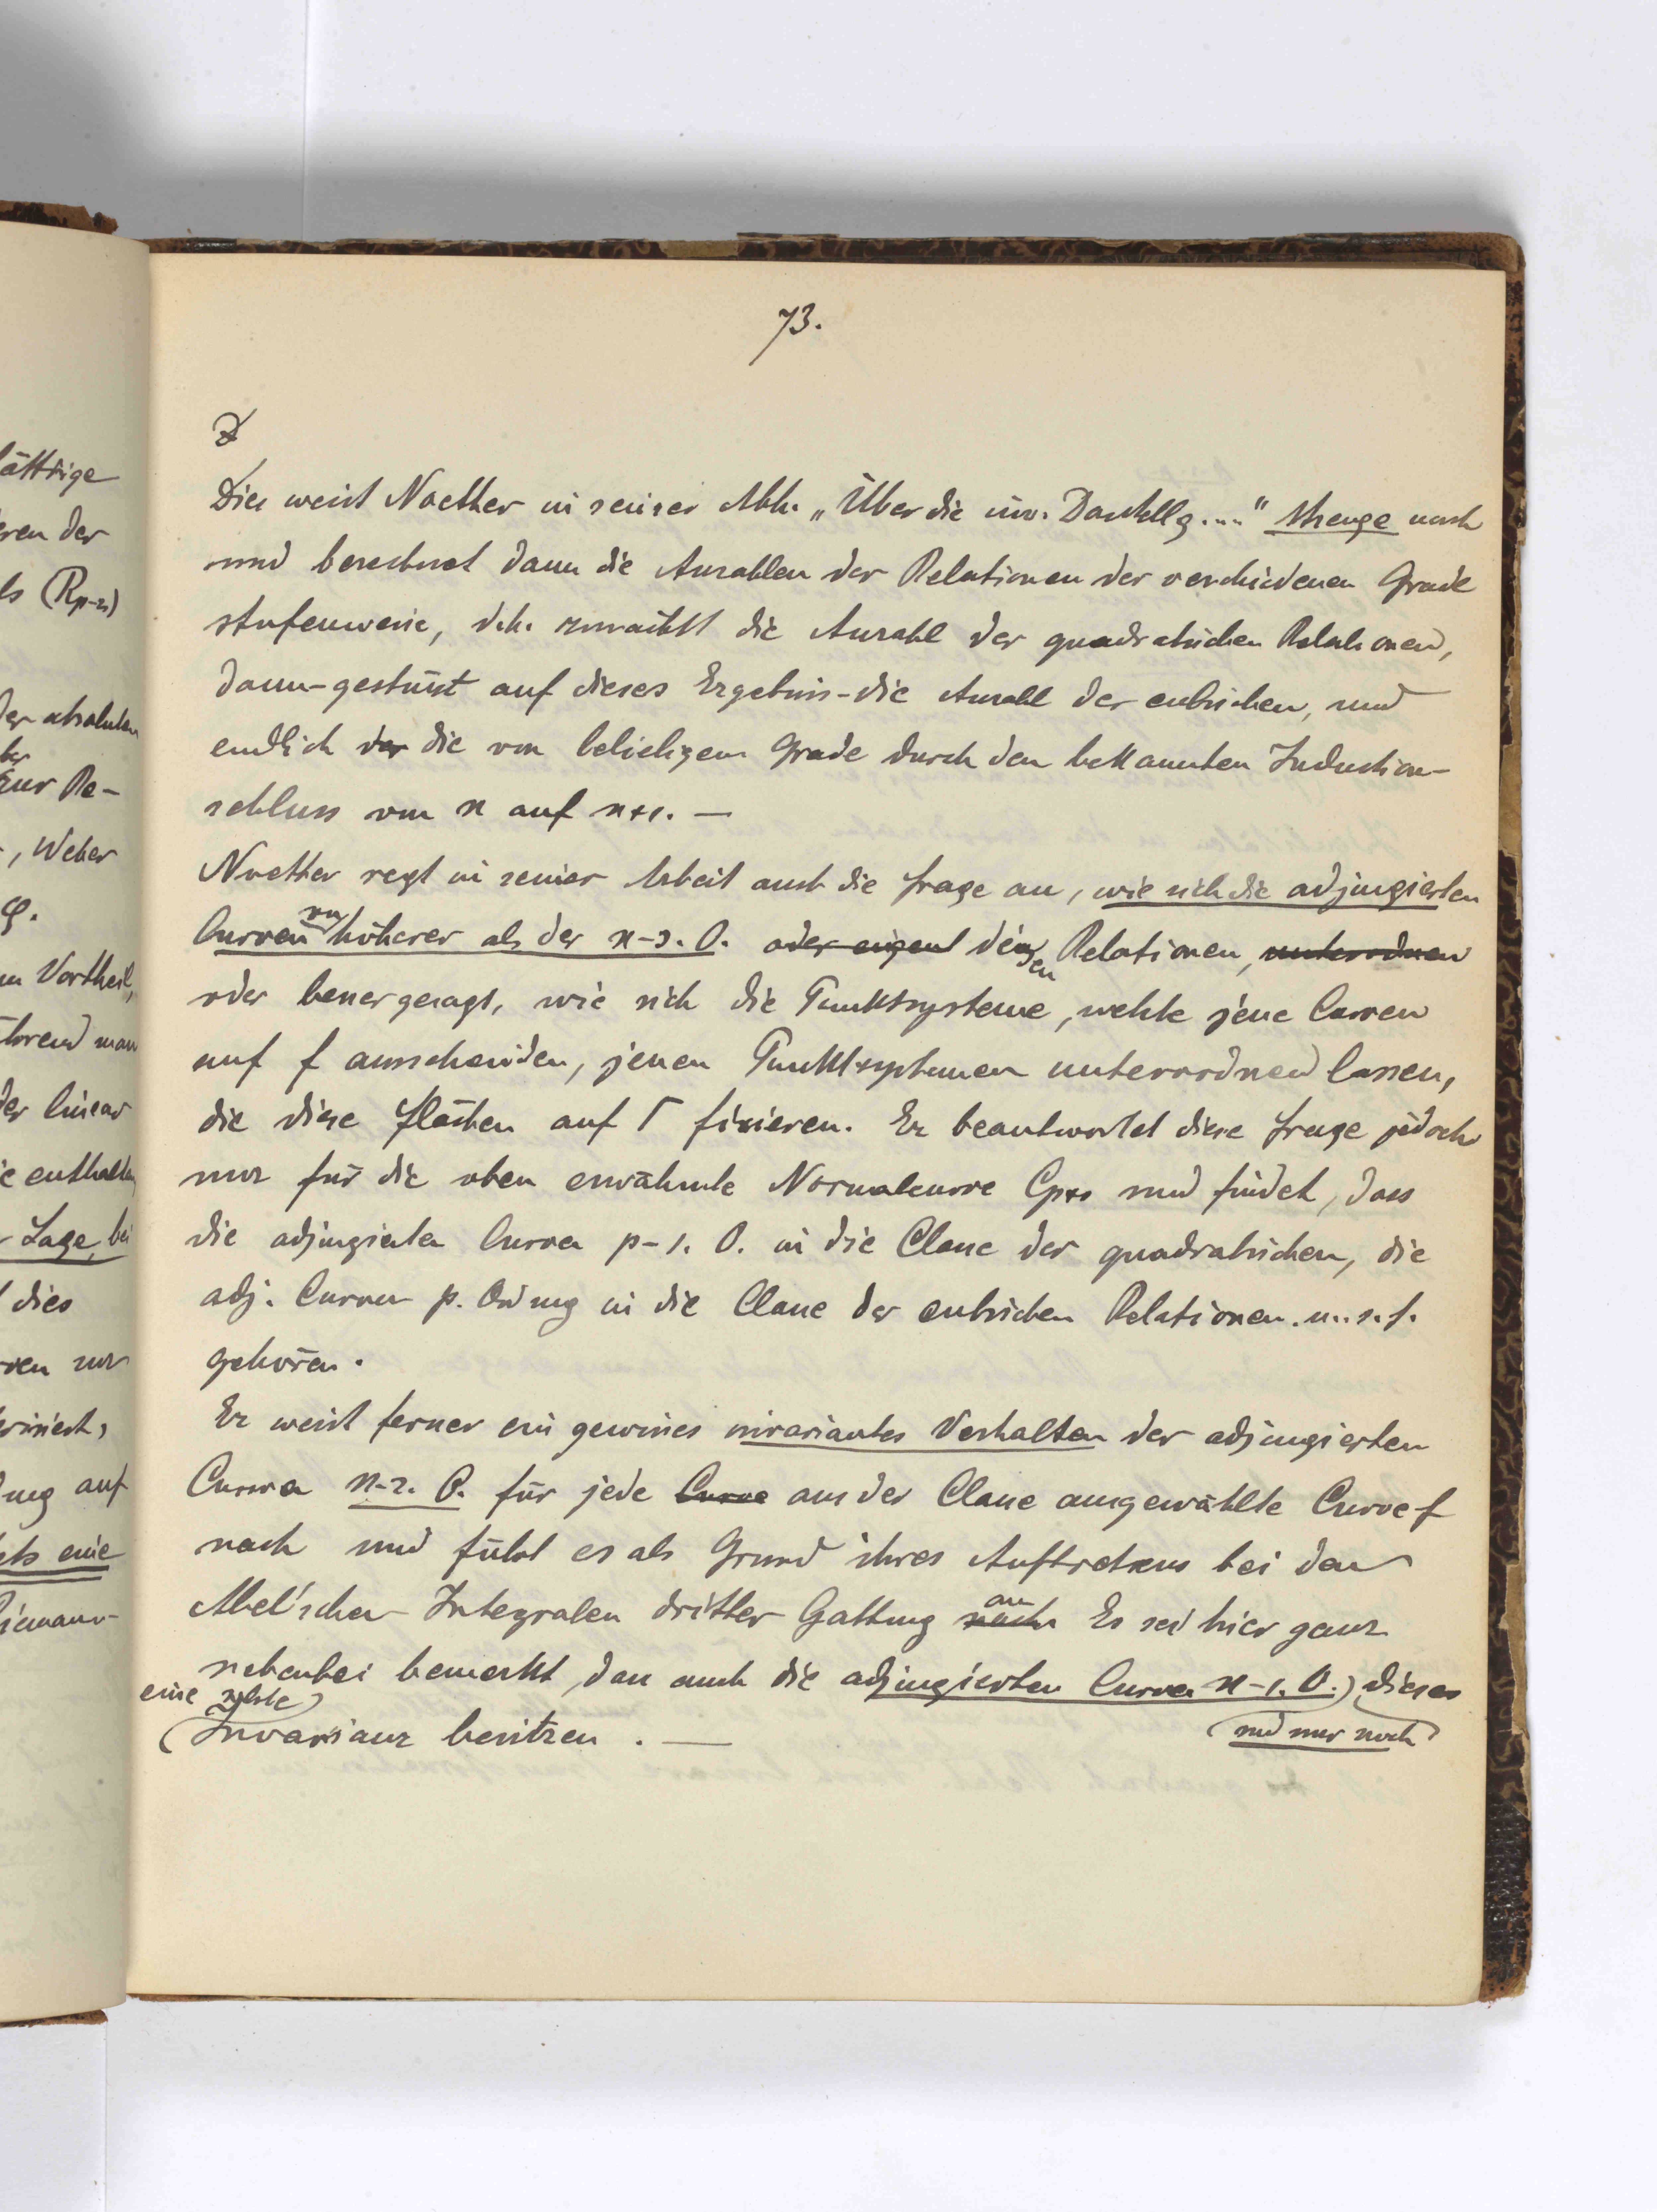 73.
lättrige
ren der
ls (Rp-2)
der absoluten
ber
zur Re-
, Weber
φ.
m Vortheil,
hrend man
der linear
ie enthalten
Lage, bei
dies
ven nur
ung auf
ets eine
Riemann-
Dies weist Noether in seiner Abh. „Über die inv. Darstellg...." strenge nach
und berechnet dann die Anzahlen der Relationen der verschiedenen Grade
stufenweise, d.h. zunächst die Anzahl der quadratischen Relationen,
dann-gestützt auf dieses Ergebnis-die Anzahl der cubischen, und
endlich der die von beliebigem Grade durch den bekannten Induction-
schluss von n auf n+1. —
Noether regt in seiner Arbeit auch die Frage an, wie sich die adjungierten
Curven von höherer als der n-3. O. oder eigent den Relationen, unterordnen
oder besser gesagt, wie sich die Punktsysteme, welche jene Curven
auf f ausschneiden, jenen Punktsystemen unterordnen lassen,
die diese Flächen auf Γ fixieren. Er beantwortet diese Frage jedoch
nur für die oben erwähnte Normalcurve Cp+1 und findet, dass
die adjungierten Curven p-1. O. in die Classe der quadratischen, die
adj. Curven p. Ordnung in die Classe der cubischen Relationen. u. s. f.
gehören.
Er weist ferner ein gewisses invariantes Verhalten der adjungierten
Curven n-2. O. für jede Curve aus der Classe ausgewählte Curve f
nach und führt es als Grund ihres Auftretens bei den
Abel'schen Integralen dritter Gattung nach an Es sei hier ganz
nebenbei bemerkt, dass auch die adjungierten Curven n-1. O.) dieses
(und nur noch)
eine solche)
(Invarianz besitzen. —